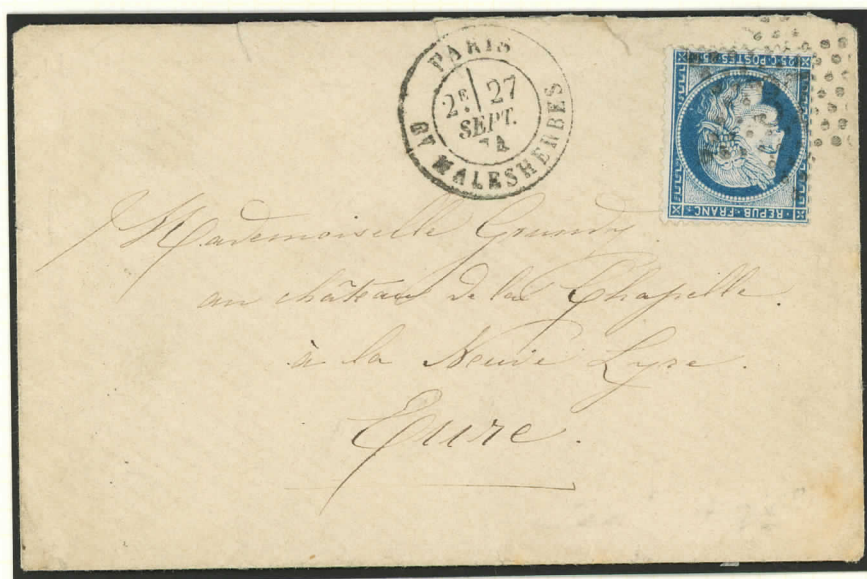 PARIS
2E 27
SEPT.
74
Bd MALESHERBES
25 C. POSTES 25 C.
REPUB. FRANC.
Mademoiselle Grundy
au château de la Chapelle.
à la Neuve Lyre.
Eure.